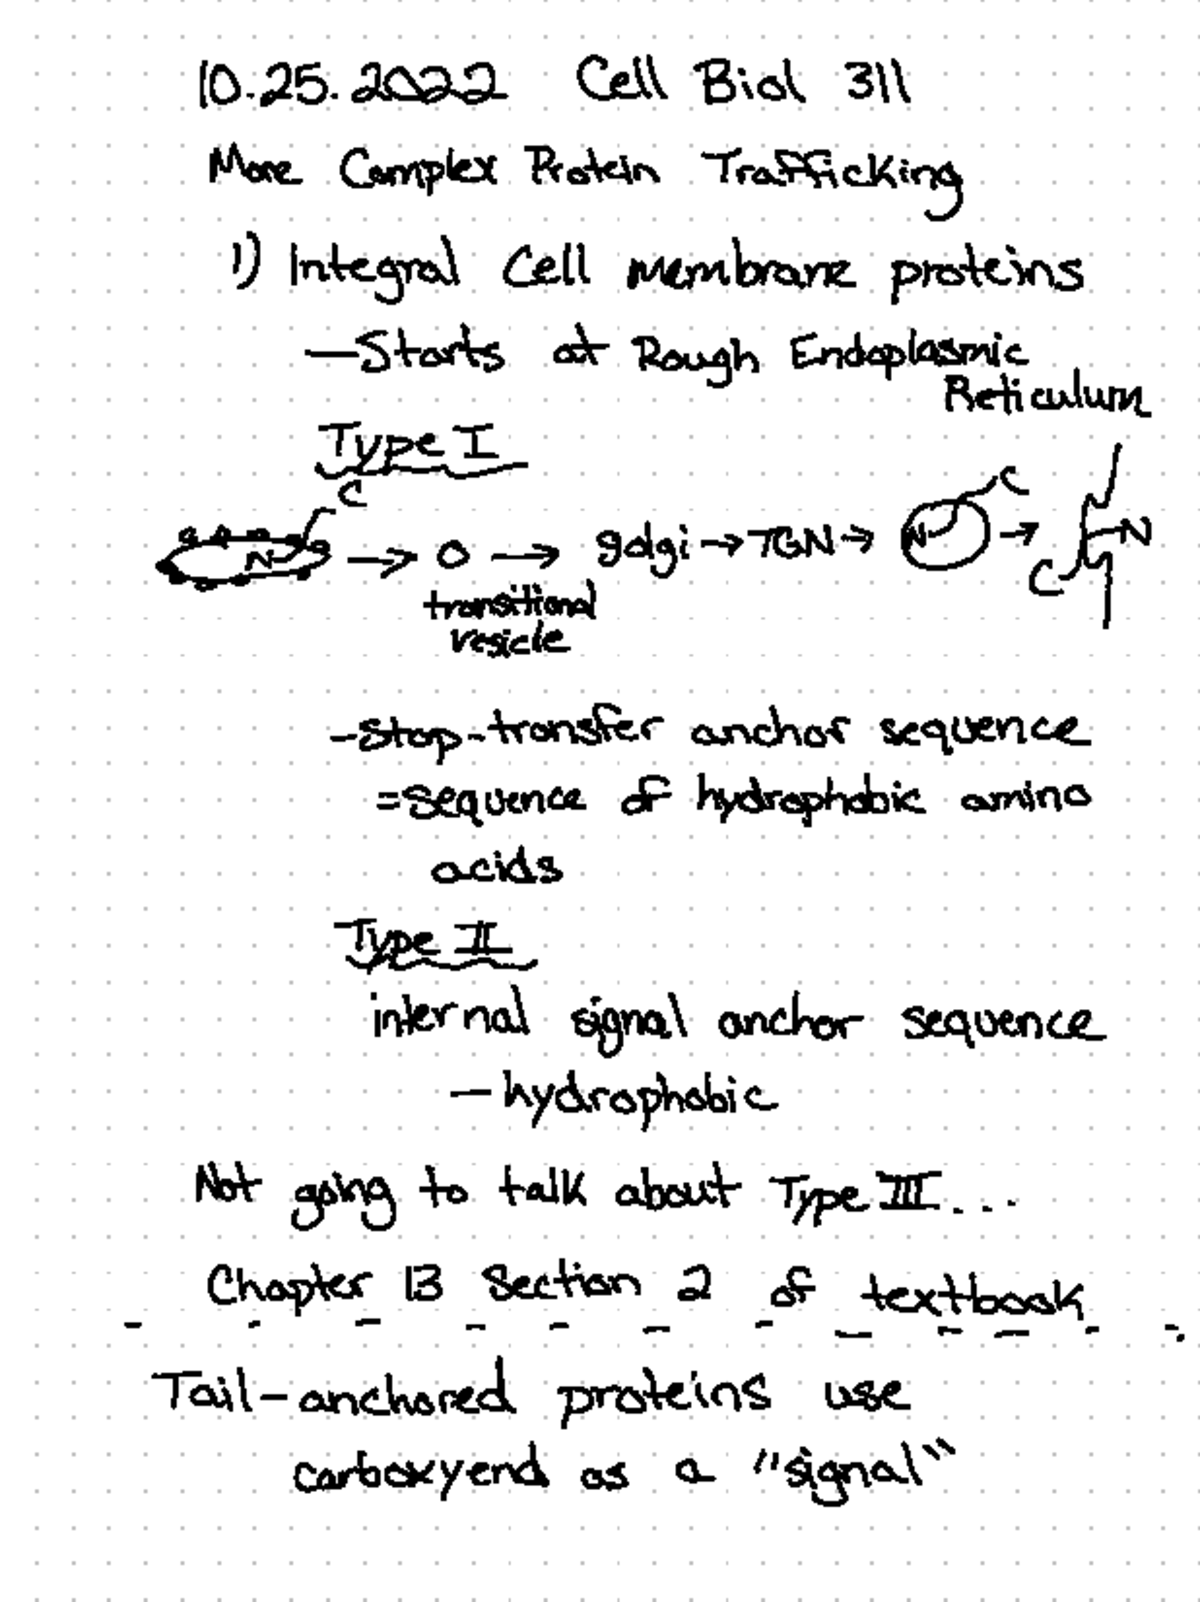 10.25.2022 Cell Biol 311
More Complex Protein Trafficking
1) Integral Cell membrane proteins
—Starts at Rough Endoplasmic
Reticulum
Type I
C
N → O → golgi → TGN → N C → C N
transitional
vesicle
-Stop-transfer anchor sequence
=sequence of hydrophobic amino
acids
Type II
internal signal anchor sequence
— hydrophobic
Not going to talk about Type III...
Chapter 13 Section 2 of textbook
Tail-anchored proteins use
carboxyend as a "signal"